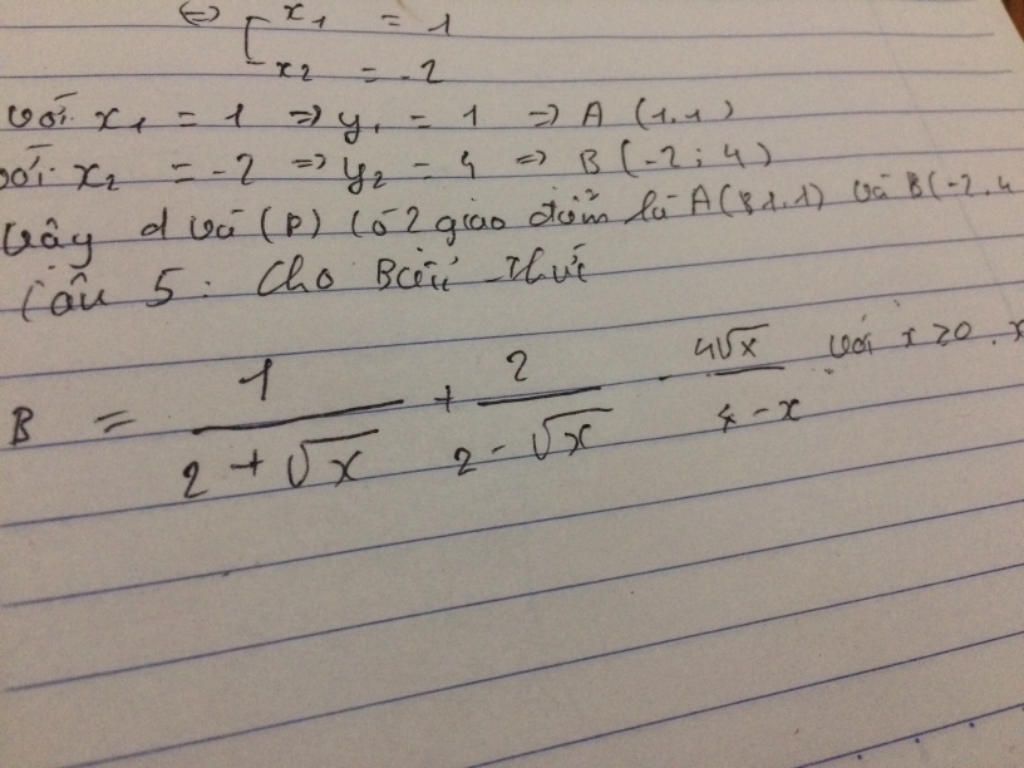 ⇔ [ x₁ = 1
x₂ = -2
với x₁ = 1 => y₁ = 1 => A (1.1)
với x₂ = -2 => y₂ = 4 => B (-2; 4)
Vậy d và (P) có 2 giao điểm là A(1.1) và B(-2.4
Câu 5: Cho Biểu thức
B = 1/(2 + √x) + 2/(2 - √x) - 4√x/(4 - x) với x ≥ 0. x